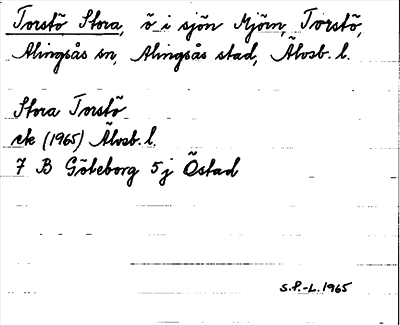 Torstö Stora, ö i sjön Mjörn, Torstö,
Alingsås sn, Alingsås stad, Älvsb. l.
Stora Torstö
ek (1965) Älvsb. l.
7 B Göteborg 5j Östad
S.P.-L. 1965